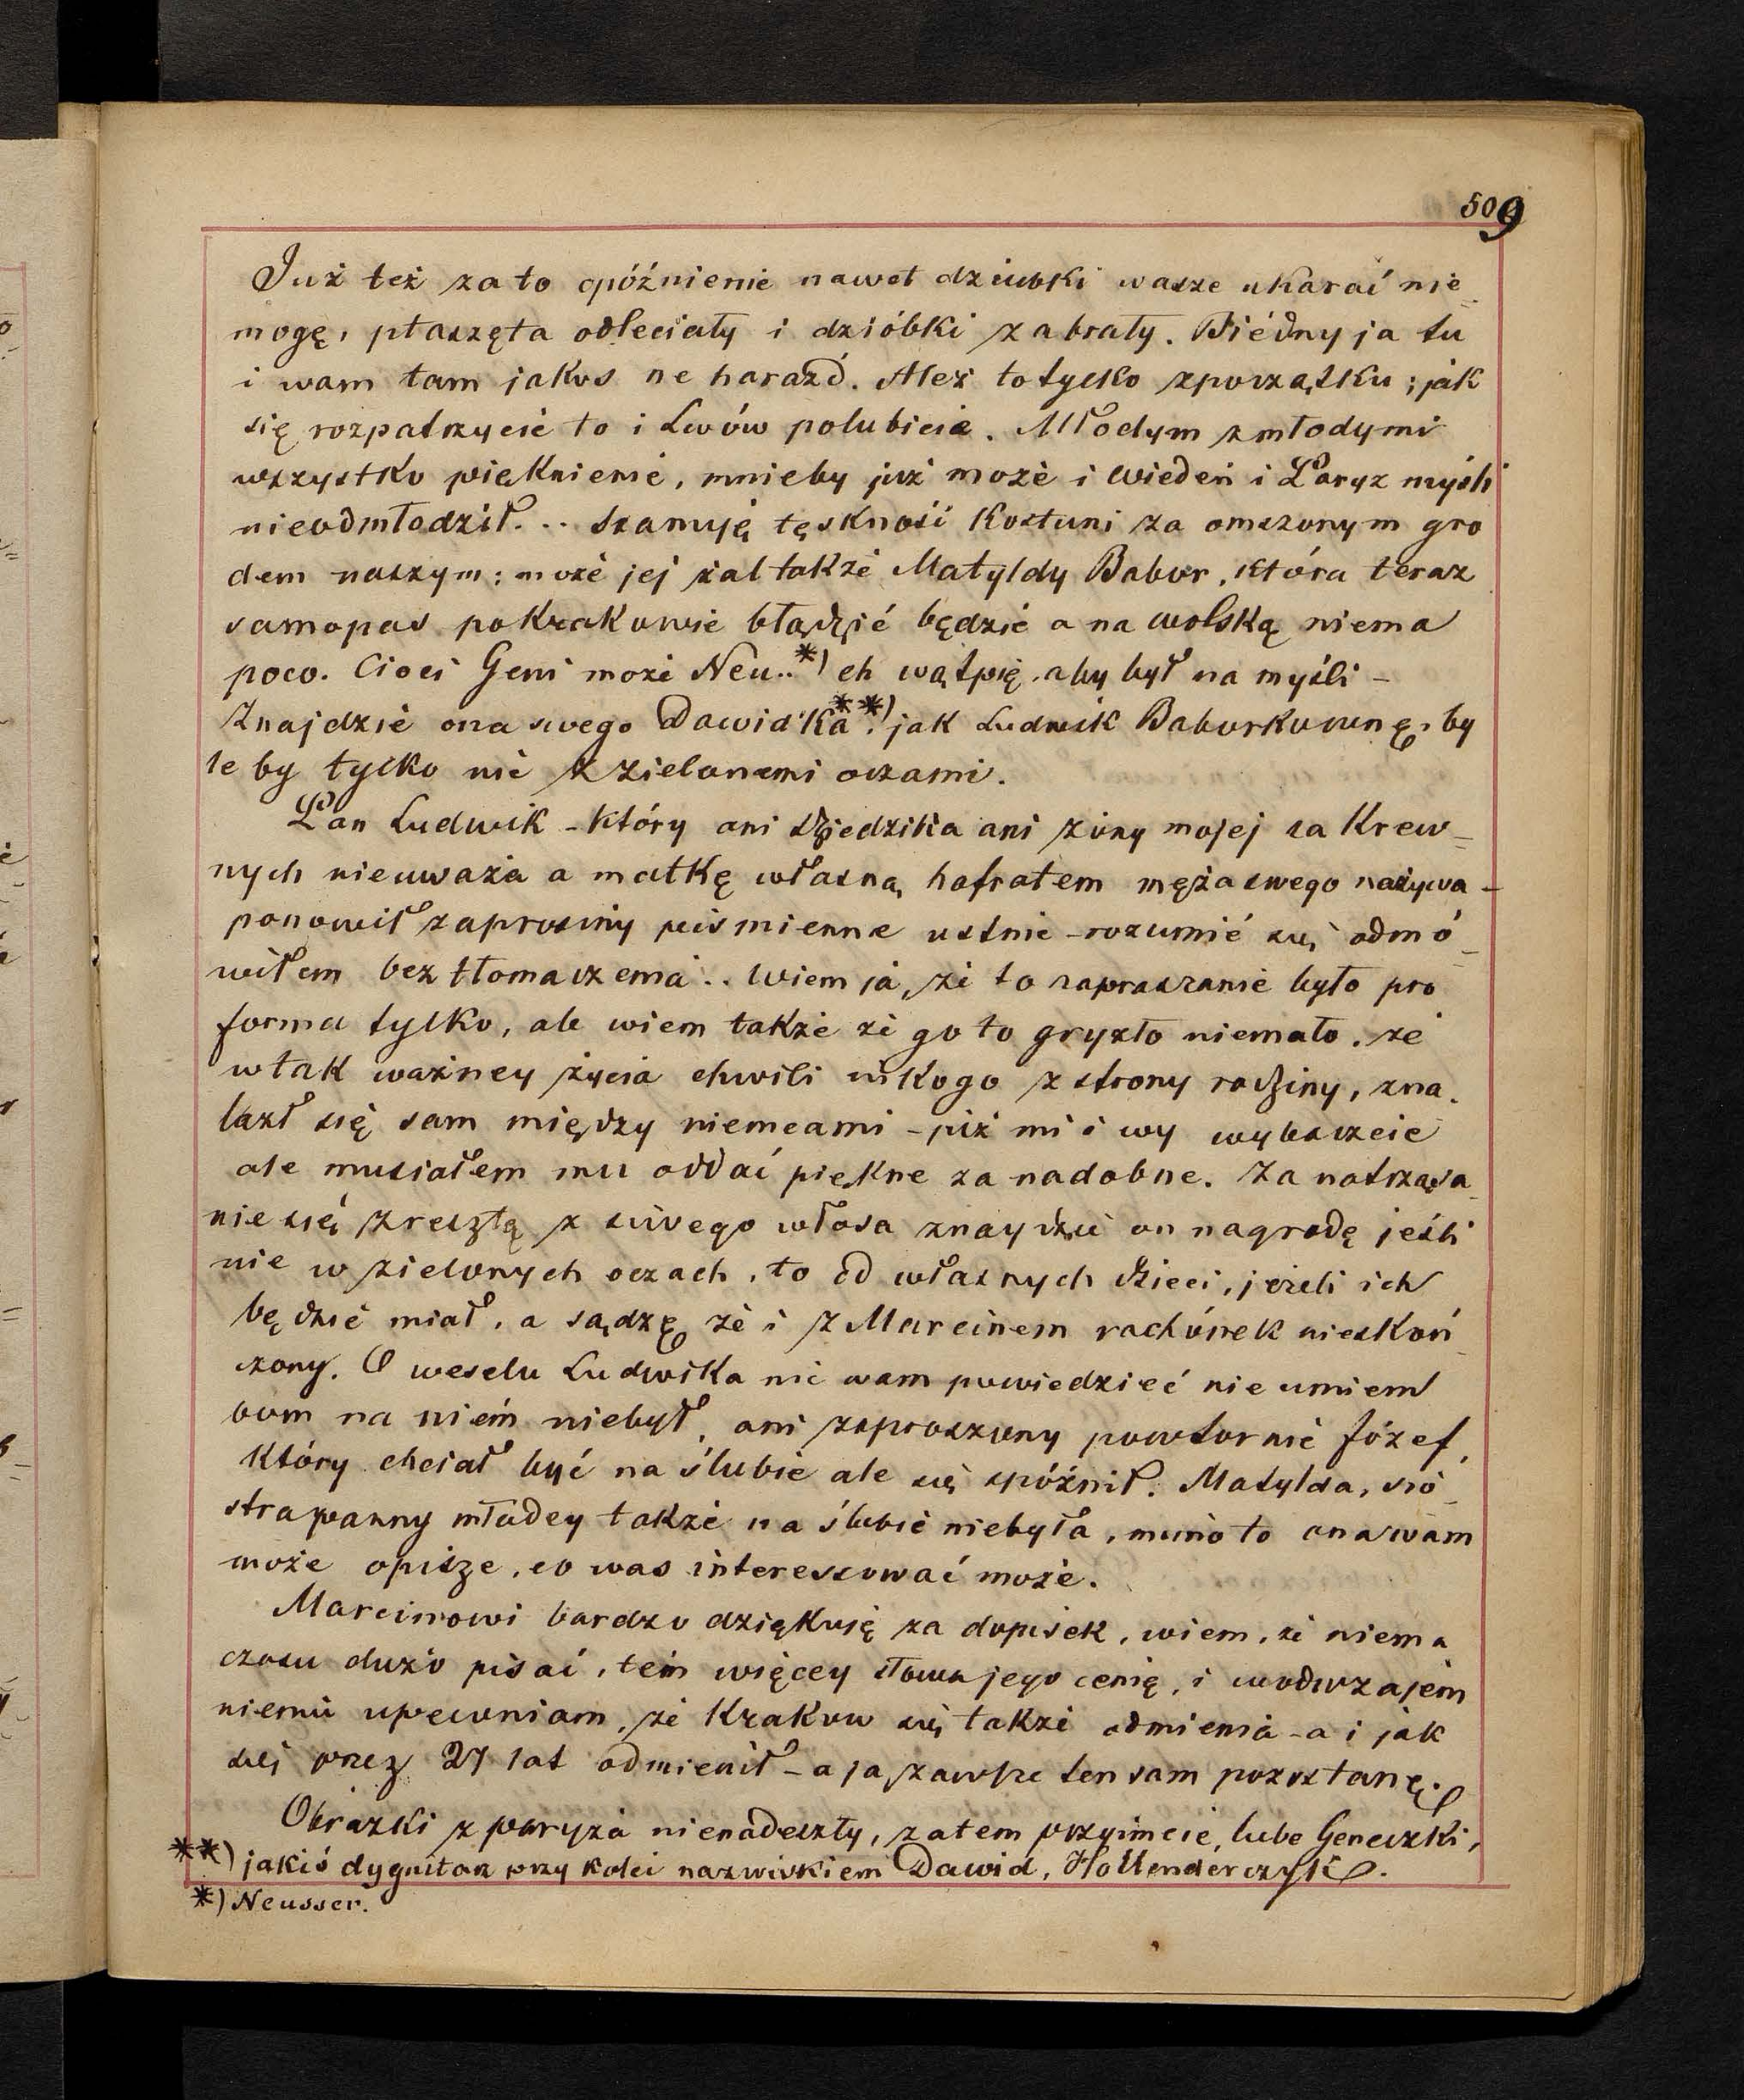 509
Już też za to opóźnienie nawet dziubki wasze ukarać nie
mogę, ptaszęta odleciały i dzióbki zabrały. Biédny ja tu
i wam tam jakos ne harazd. Ależ to tylko zpoczątku; jak
się rozpatrzycie to i Lwów polubicie. Młodym z młodymi
wszystko pięknieme, mnieby już może i Wiedeń i Paryż myśli
nieodmłodził... Szanuję tęskność Kostuni za omszonym gro
dem naszym; może jej żal także Matyldy Babor, która teraz
samopas po Krakowie błądzić będzie a na Wolską niema
poco. Cioci Geni może Neu..*) ch wątpię, aby był na myśli -
Znajdzie ona swego Dawidka**) jak Ludwik Baburkównę, by
le by tylko nie z zielonemi oczami.
Pan Ludwik - który ani Dziedzika ani żony mojej za Krew-
nych nieuważa a matkę własną hofratem męża swego nazywa -
ponowił zaprosiny piśmienne ustnie - rozumié się odmó-
wiłem bez tłomaczenia.. Wiem ja, że to zapraszanie było pro
forma tylko, ale wiem także że go to gryzło niemało, że
w tak ważney życia chwili nikogo z strony rodziny, zna-
lazł się sam między niemcami - już mi i wy wybaczcie
ale musiałem mu oddać piękne za nadobne. Za natrząsa-
nie się zresztą z siwego włosa znaydzie on nagrodę jeśli
nie w zielonych oczach, to od własnych dzieci, jeżeli ich
będzie miał, a sądzę że i z Marcinem rachónek nieskoń-
czony. O weselu Ludwika nic wam powiedzieć nie umiem
bom na niem niebył, ani zaproszony powtornie Józef,
który chciał być na ślubie ale się spóźnił. Matylda, sio-
stra panny młodey także na ślubie niebyła, mimo to ona wam
może opisze, co was interessować może.
Marcinowi bardzo dziękuję za dopisek, wiem, że niema
czasu dużo pisać, tem więcey słowa jego cenię, i wodwzajem
niemu upewniam, że Krakow się także odmienia - a i jak
się przez 27 lat odmienił - a ja zawsze ten sam pozostanę.
Obrazki z paryża nienadeszły, zatem przyimcie, lube Geneczki,
**) jakiś dygnitaz przy kolei nazwiskiem Dawid, Hollenderczyk.
*) Neusser.